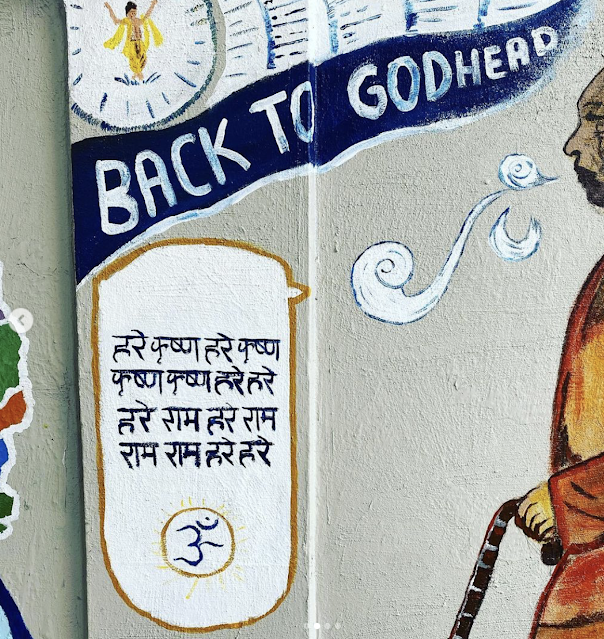 BACK TO GODHEAD
हरे कृष्ण हरे कृष्ण
कृष्ण कृष्ण हरे हरे
हरे राम हरे राम
राम राम हरे हरे
ॐ